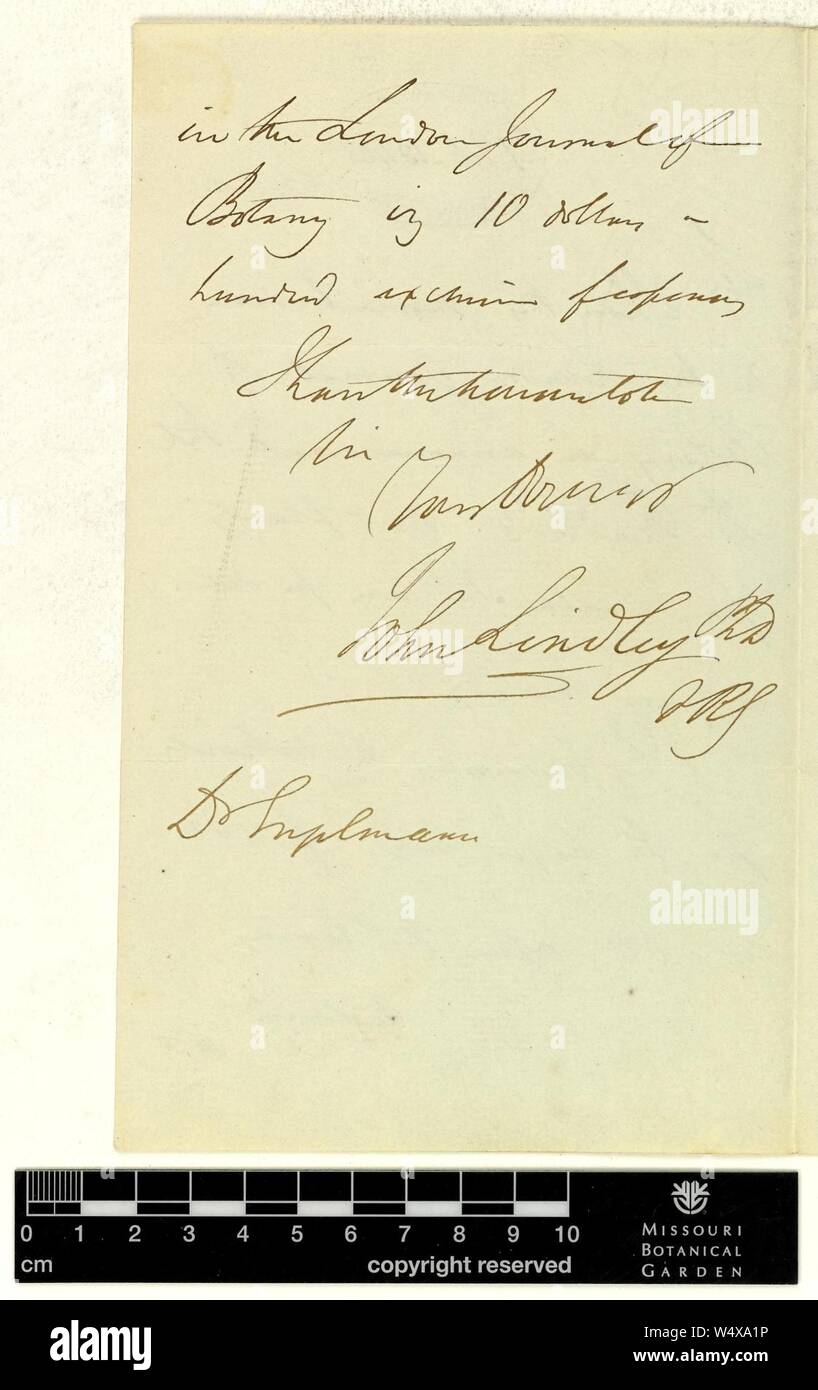 in the London Journal of
Botany viz 10 dollars a
hundred exclusive of expenses
I have the honour to be
Sir
Your Obt Servt
John Lindley PhD
FRS
Dr Engelmann
0 1 2 3 4 5 6 7 8 9 10
cm
copyright reserved
MISSOURI
BOTANICAL
GARDEN
alamy
alamy
alamy
Image ID: W4XA1P
www.alamy.com